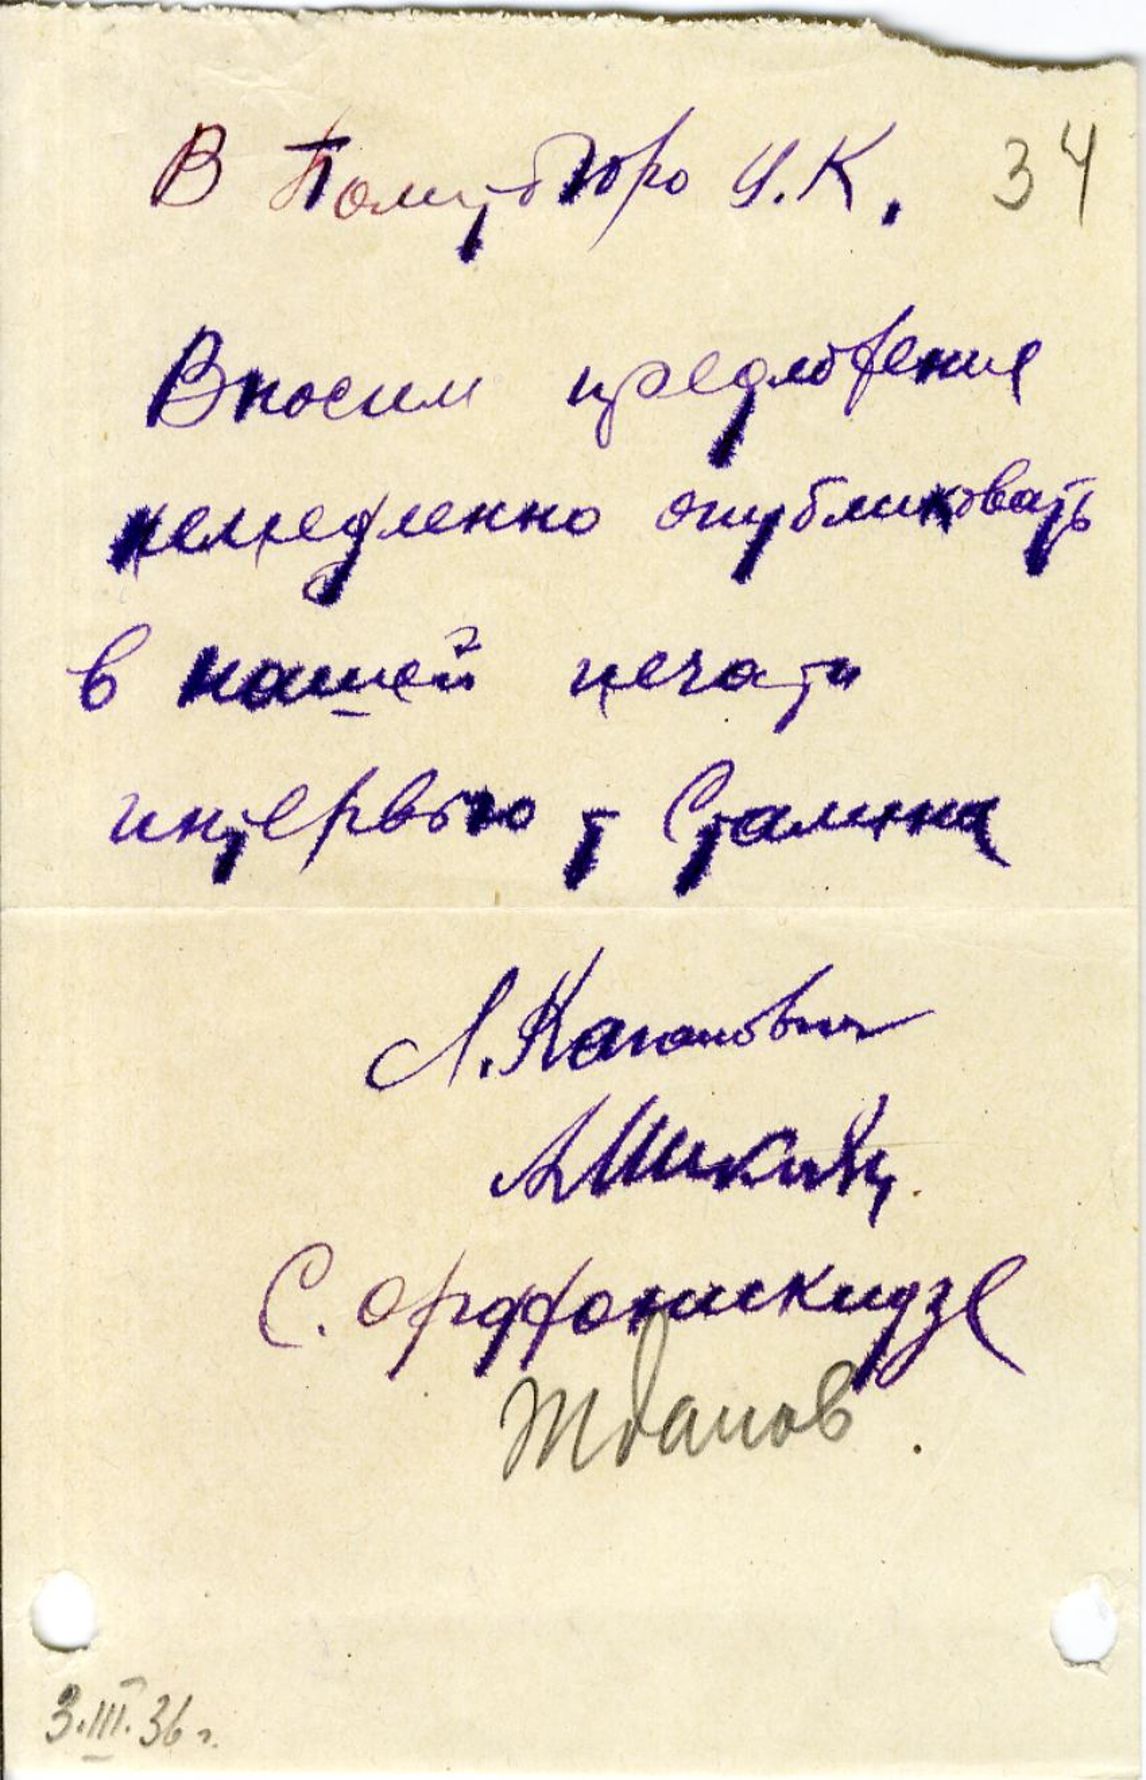 В Политбюро Ц.К. 34
Вносим предложение
немедленно опубликовать
в нашей печати
интервью т Сталина
Л. Каганович
А Микоян
С. Орджоникидзе
Жданов
3.III.36 г.